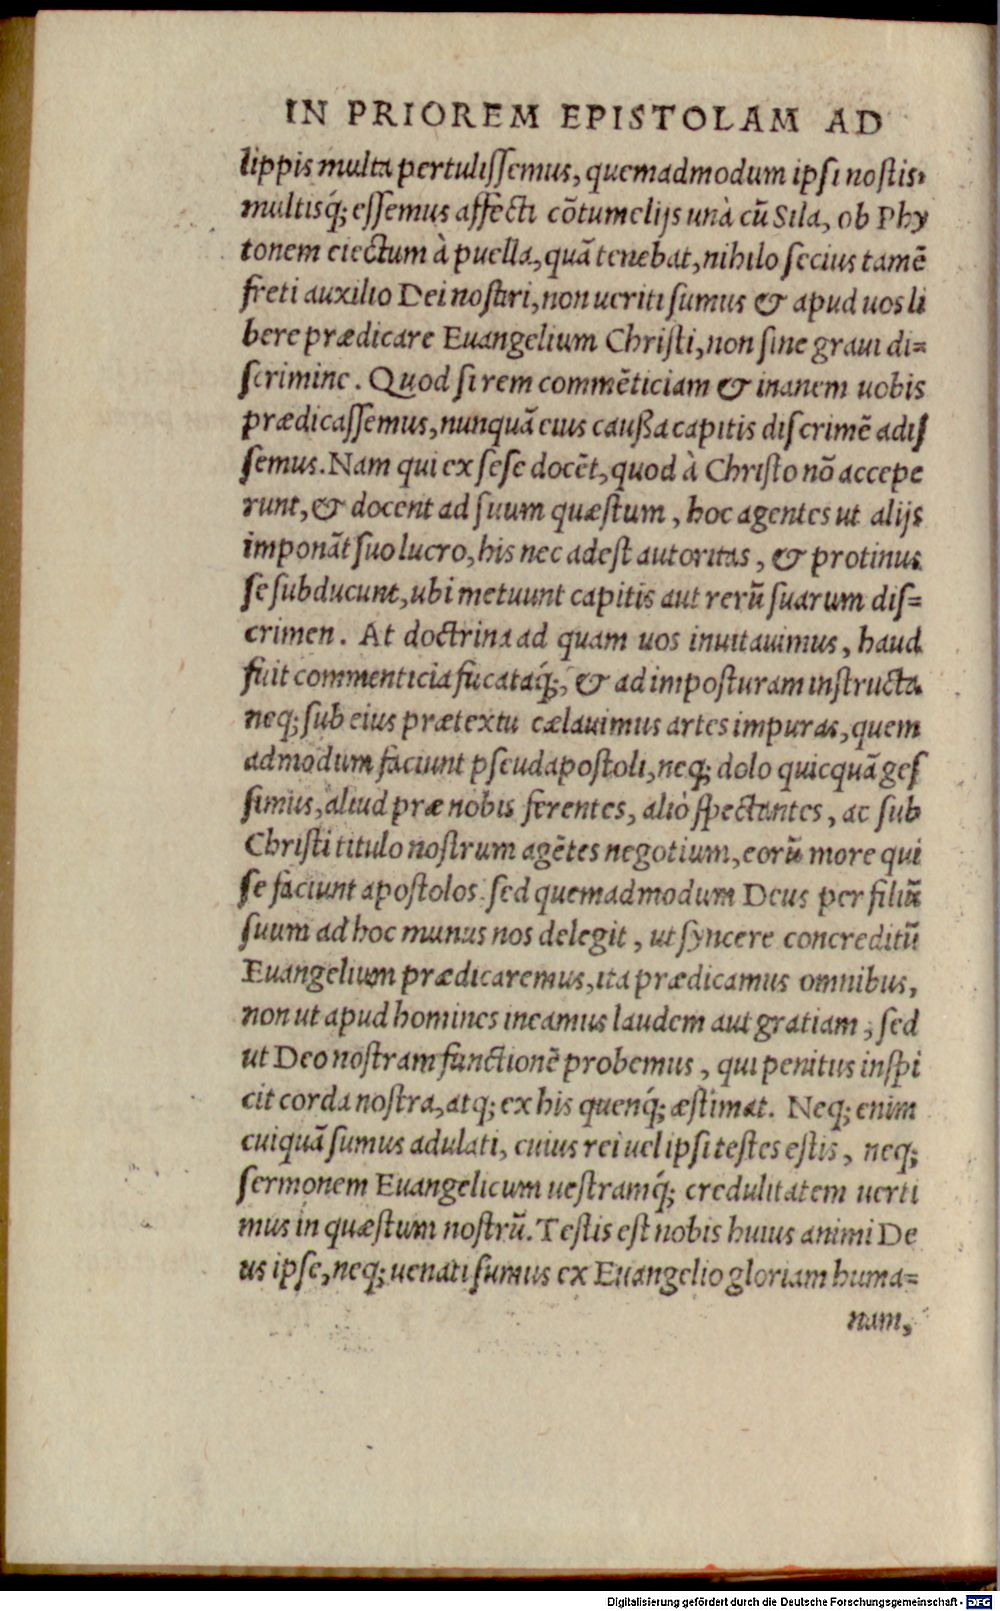 IN PRIOREM EPISTOLAM AD
lippis multa pertulissemus, quemadmodum ipsi nostis,
multisq́; essemus affecti cõtumelijs unà cũ Sila, ob Phy
tonem eiectum à puella, quã tenebat, nihilo secius tamẽ
freti auxilio Dei nostri, non ueriti sumus & apud uos li
bere prædicare Euangelium Christi, non sine graui di=
scrimine. Quod si rem commẽticiam & inanem uobis
prædicassemus, nunquã eius caußa capitis discrimẽ adis
semus. Nam qui ex sese docẽt, quod à Christo nõ accepe
runt, & docent ad suum quæstum, hoc agentes ut alijs
imponãt suo lucro, his nec adest autoritas, & protinus
se subducunt, ubi metuunt capitis aut rerũ suarum dis=
crimen. At doctrina ad quam uos inuitauimus, haud
fuit commenticia fucataq́;, & ad imposturam instructa
neq; sub eius prætextu cælauimus artes impuras, quem
admodum faciunt pseudapostoli, neq; dolo quicquã ges
simus, aliud præ nobis ferentes, aliò spectantes, ac sub
Christi titulo nostrum agẽtes negotium, eorũ more qui
se faciunt apostolos. sed quemadmodum Deus per filiũ
suum ad hoc munus nos delegit, ut syncere concreditũ
Euangelium prædicaremus, ita prædicamus omnibus,
non ut apud homines ineamus laudem aut gratiam, sed
ut Deo nostram functionẽ probemus, qui penitus inspi
cit corda nostra, atq; ex his quenq́; æstimat. Neq; enim
cuiquã sumus adulati, cuius rei uel ipsi testes estis, neq;
sermonem Euangelicum uestramq́; credulitatem uerti
mus in quæstum nostrũ. Testis est nobis huius animi De
us ipse, neq; uenati sumus ex Euangelio gloriam huma=
nam,
Digitalisierung gefördert durch die Deutsche Forschungsgemeinschaft - DFG